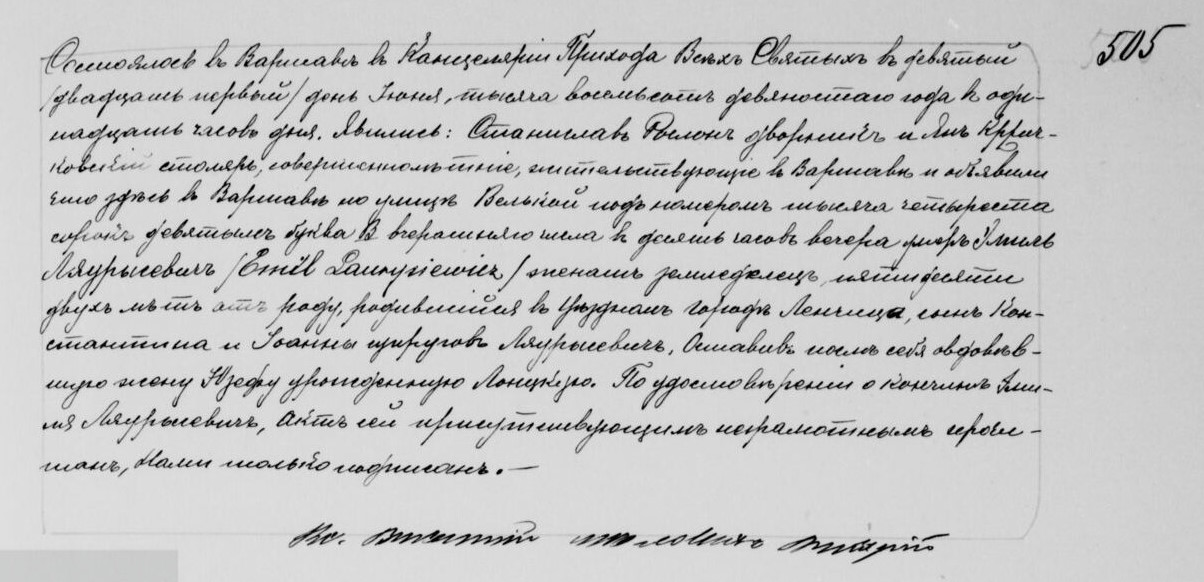 505
Состоялось въ Варшавѣ въ Канцеляріи Прихода Всѣхъ Святыхъ въ девятый
/двадцать первый/ день Іюня, тысяча восемьсотъ девяностаго года въ оди-
надцать часовъ дня. Явились: Станиславъ Рослонъ дворникъ и Янъ
ковскій столяръ, совершеннолѣтніе, жительствующіе въ Варшавѣ и объявили
что здѣсь въ Варшавѣ по улицѣ Велькой подъ номеромъ тысяча четыреста
сорокъ девятымъ буква В вчерашняго числа въ десять часовъ вечера умеръ Эмиль
Ляурысевичъ /Emil Laurysiewicz/ женатъ земледѣлецъ, пятидесяти
двухъ лѣтъ отъ роду, родившійся въ Уѣздномъ городѣ Ленчица, сынъ Кон-
стантина и Іоанны супруговъ Ляурысевичъ, Оставивъ послѣ себя овдовѣв-
шую жену Юзефу урожденную Лонцкую. По удостовѣреніи о кончинѣ Эми-
ля Ляурысевичъ, Актъ сей присутствующимъ неграмотнымъ прочи-
танъ, Нами только подписанъ. —
Кс.